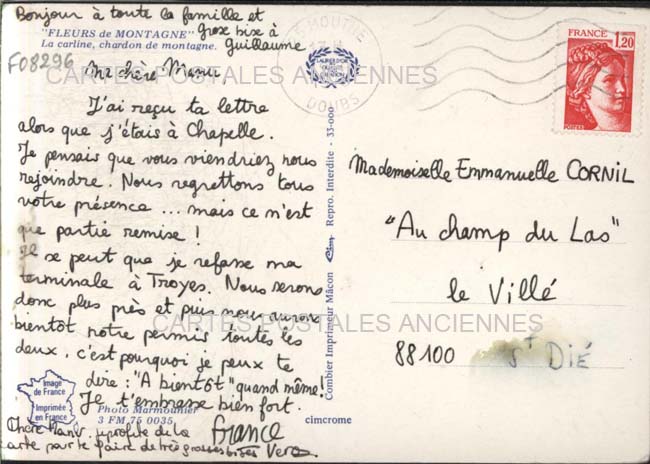 Bonjour à toute la famille et
gros bise à
Guillaume
"FLEURS de MONTAGNE"
La carline, chardon de montagne.
F08296
CARTES POSTALES ANCIENNES
Ma chère Manu
J'ai reçu ta lettre
alors que j'étais à Chapelle.
Je pensais que vous viendriez nous
rejoindre. Nous regrettons tous
votre présence ... mais ce n'est
que partie remise !
Il se peut que je refasse ma
terminale à Troyes. Nous serons
donc plus près et puis nous aurons
bientôt notre permis toutes les
deux, c'est pourquoi je peux te
dire : "A bientôt" quand même !
Je t'embrasse bien fort.
France
Chère Manu, profite de la
carte pour te faire de très grosses bises Vero.
Image
de France
Imprimée
en France
Photo Marmounier
3 FM 75 0035
cimcrome
Combier Imprimeur Mâcon Cim Repro. Interdite - 33-000
MOUTHE
DOUBS
FRANCE
1,20
POSTES
Mademoiselle Emmanuelle CORNIL
"Au champ du Las"
le Villé
88100 St DIÉ
CARTES POSTALES ANCIENNES